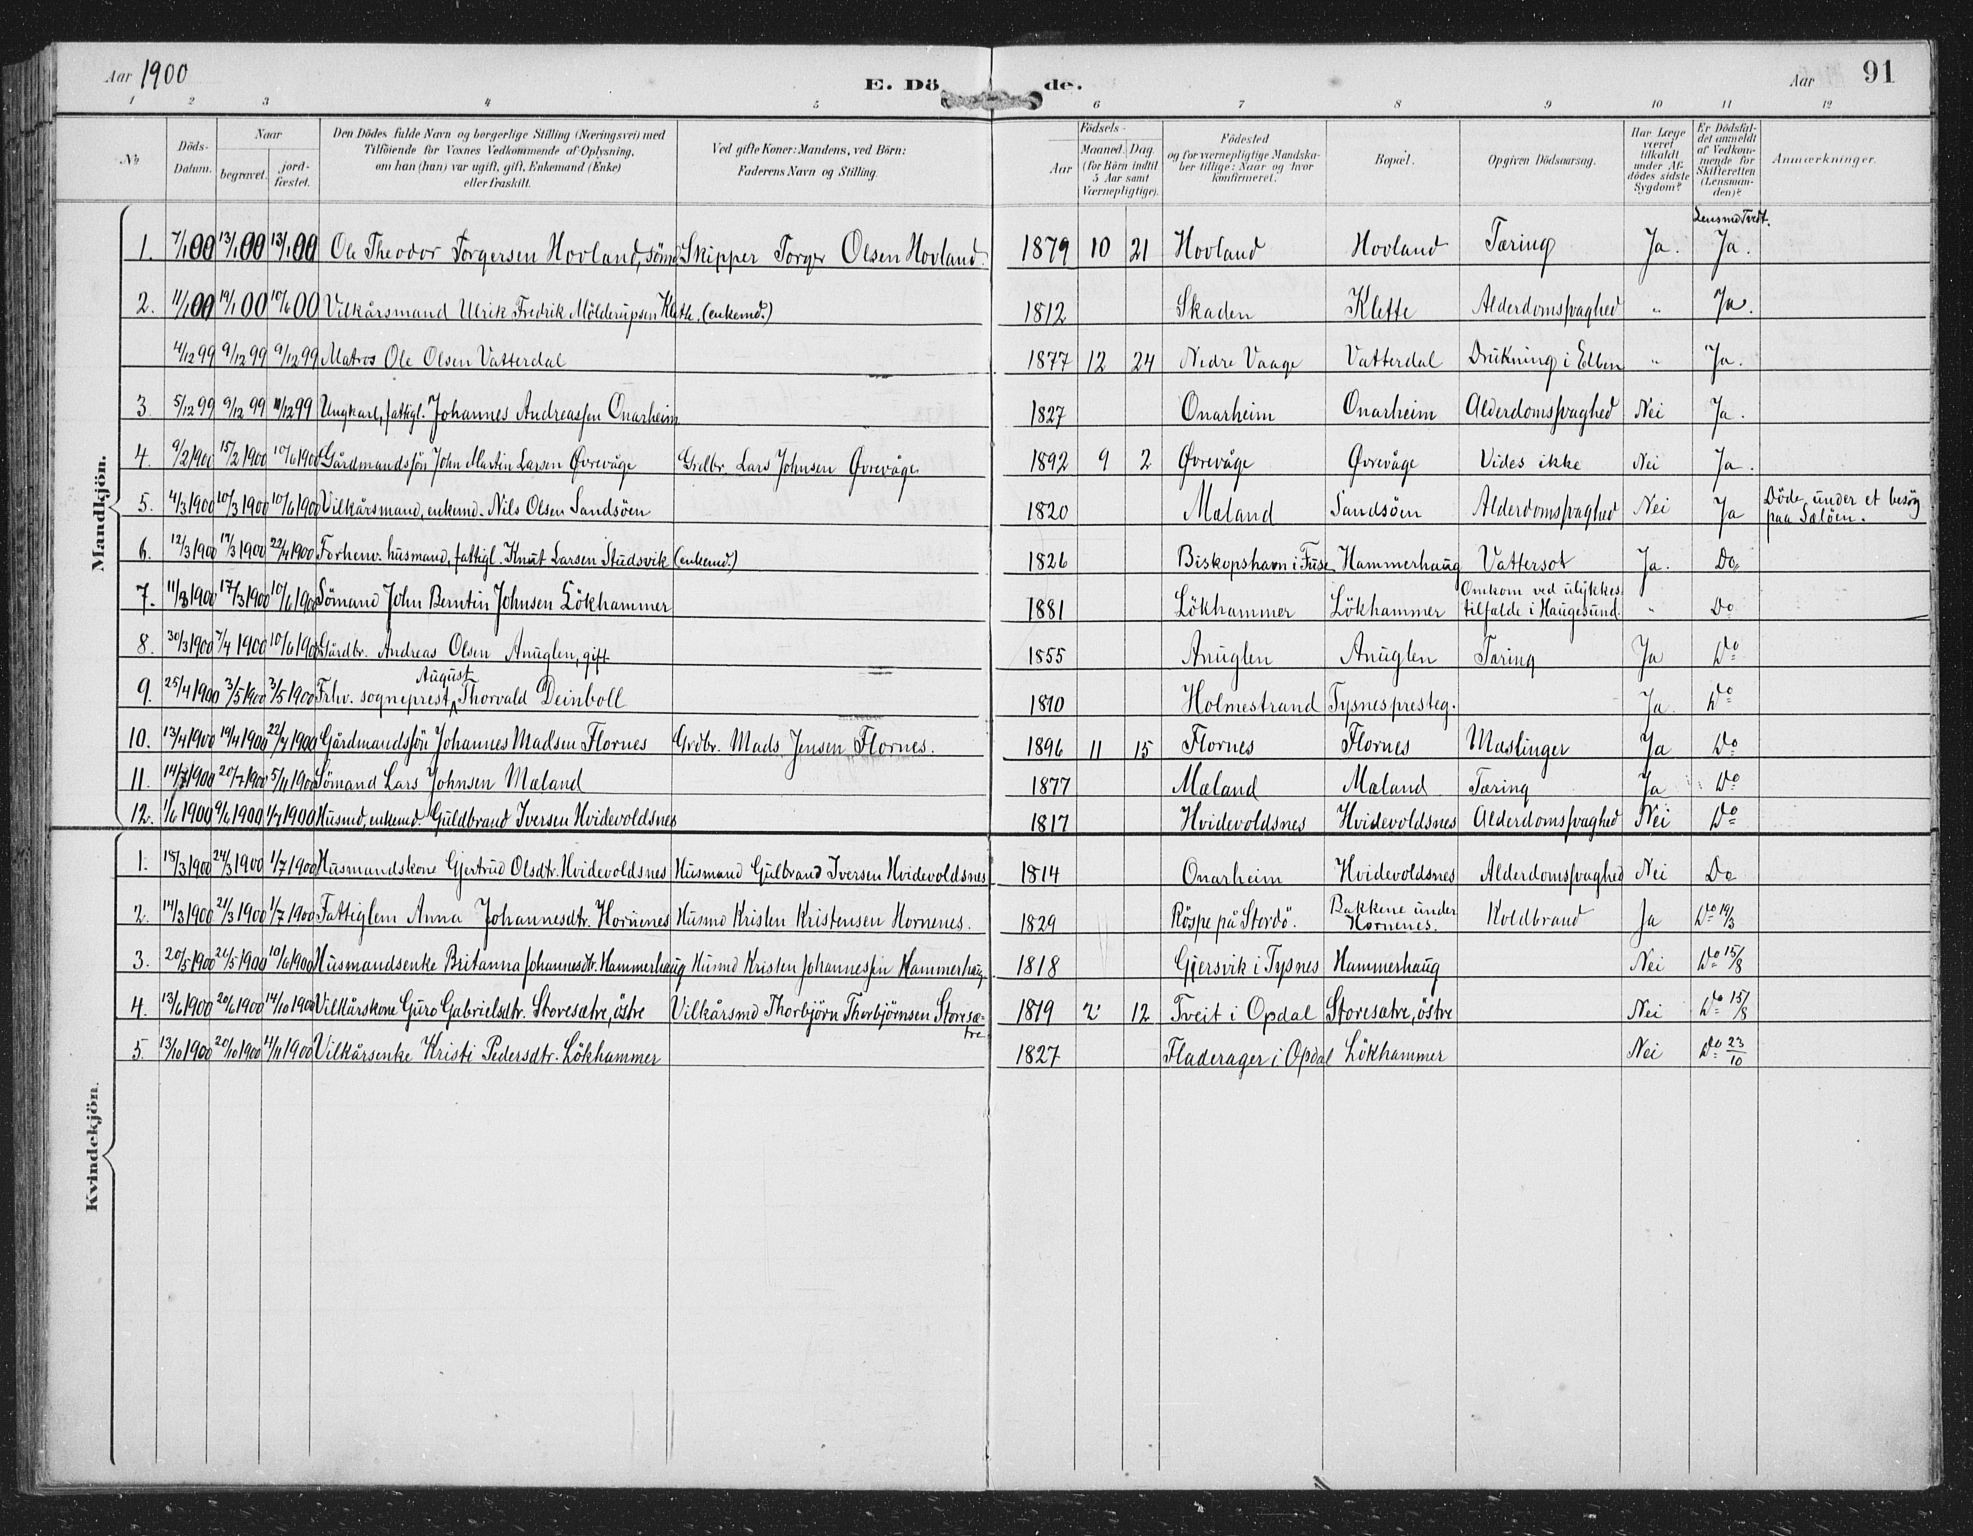 Aar 1900 E. Döde. Aar 91
1 2 3 4 5 6 7 8 9 10 11 12
№ Döds-Datum. Naar begravet. jordfæstet. Den Dödes fulde Navn og borgerlige Stilling (Næringsvei) med Tilföiende for Voxnes Vedkommende af Oplysning, om han (hun) var ugift, gift, Enkemand (Enke) eller fraskilt. Ved gifte Koner: Mandens, ved Börn: Faderens Navn og Stilling. Födsels- Aar Maaned. Dag. (for Börn indtil 5 Aar samt Værnepligtige). Födested og for værnepligtige Mandskaber tillige: Naar og hvor konfirmeret. Bopæl. Opgiven Dödsaarsag. Har Læge været tilkaldt under Afdödes sidste Sygdom? Er Dödsfaldet anmeldt af Vedkommende for Skifteretten (Lensmanden)? Anmærkninger.
Mandkjön.
Lensmd Tvedt.
1. 7/1 00 13/1 00 13/1 00 Ole Theodor Torgersen Hovland, sömd Skipper Torger Olsen Hovland. 1879 10 21 Hovland Hovland Tæring Ja. Ja.
2. 11/1 00 19/1 00 10/6 00 Vilkårsmand Ulrik Fredrik Mölderupsen Klette, (enkemd.) 1812 Skaden Klette Alderdomssvaghed " Ja.
4/12 99 9/12 99 9/12 99 Matros Ole Olsen Vatterdal 1877 12 24 Nedre Vaage Vatterdal Drukning i Elben " Ja.
3. 5/12 99 9/12 99 /12 99 Ungkarl, fattigl. Johannes Andreassen Onarheim 1827 Onarheim Onarheim Alderdomssvaghed Nei Ja.
4. 9/2 1900 15/2 1900 10/6 1900 Gårdmandssön John Martin Larsen Øvrevåge Grdbr. Lars Johnsen Øvrevåge 1892 9 2 Øvrevåge Øvrevåge Vides ikke Nei Ja.
5. 4/3 1900 10/3 1900 10/6 1900 Vilkårsmand, enkemd. Nils Olsen Sandsöen 1820 Mæland Sandsöen Alderdomssvaghed Nei Ja Döde under et besög paa Sælöen.
6. 12/3 1900 17/3 1900 22/4 1900 Forhenv. husmand, fattigl. Knut Larsen Studsvik (enkemd.) 1826 Biskopshavn i Fuse Hammerhaug Vattersot Ja. Do
7. 11/3 1900 17/3 1900 10/6 1900 Sömand John Berntin Johnsen Lökhammer 1881 Lökhammer Lökhammer Omkom ved ulykkestilfælde i Haugesund " Do
8. 30/3 1900 7/4 1900 10/6 1900 Gårdbr. Andreas Olsen Anuglen, gift 1855 Anuglen Anuglen Tæring Ja Do
9. 25/4 1900 3/5 1900 3/5 1900 Frhv. sogneprest August Thorvald Deinboll 1810 Holmestrand Tysnes presteg. Ja. Do
10. 13/4 1900 19/4 1900 22/4 1900 Gårdmandssön Johannes Madsen Flornes Grdbr. Mads Jensen Flornes. 1896 11 15 Flornes Flornes Mæslinger Ja Do
11. 14/7 1900 20/7 1900 5/11 1900 Sömand Lars Johnsen Mæland 1877 Mæland Mæland. Tæring Ja Do
12. 1/6 1900 9/6 1900 1/7 1900 Husmd, enkemd. Guldbrand Iversen Hvidevoldsnes 1817 Hvidevoldsnes Hvidevoldsnes Alderdomssvaghed Nei Do
Kvindekjön.
1. 18/3 1900 24/3 1900 1/7 1900 Husmandskone Gjertrud Olsdtr. Hvidevoldsnes Husmand Gulbrand Iversen Hvidevoldsnes 1814 Onarheim Hvidevoldsnes Alderdomssvaghed Nei Do
2. 14/3 1900 21/3 1900 1/7 1900 Fattiglem Anna Johannesdtr. Hornenes Husmd Kristen Kristensen Hornenes. 1829 Röspe på Stordö. Bakkene under Hornenes. Koldbrand Ja Do 19/3
3. 20/5 1900 26/5 1900 10/6 1900 Husmandsenke Britanna Johannesdtr. Hammerhaug Husmd Kristen Johannessen Hammerhaug 1818 Gjersvik i Tysnes Hammerhaug Nei Do 15/8
4. 13/6 1900 20/6 1900 14/10 1900 Vilkårskone Guro Gabrielsdtr. Storesætre, östre Vilkårsmd Thorbjörn Thorbjörnsen Storesætre 1819 2 12 Tveit i Opdal Storesætre, östre Nei Do 15/8
5. 13/10 1900 20/10 1900 /11 1900 Vilkårsenke Kristi Pedersdtr. Lökhammer 1827 Fladerager i Opdal Lökhammer Nei Do 23/10